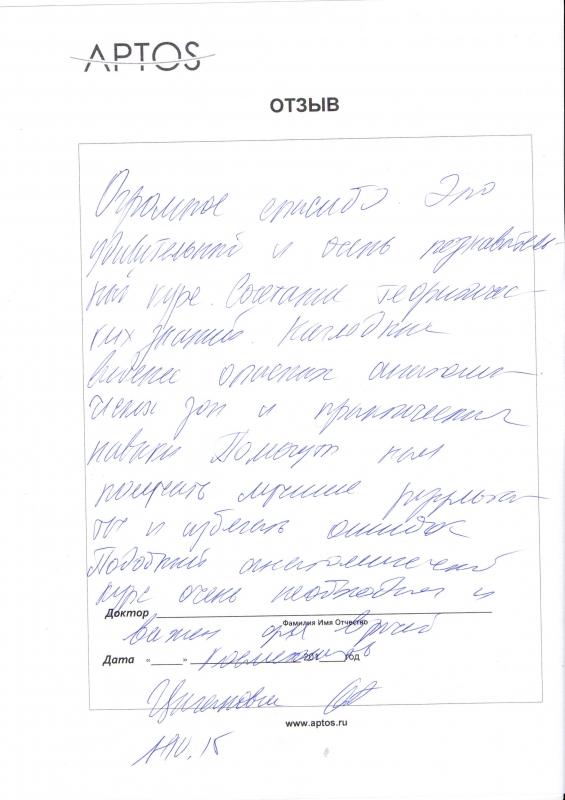 APTOS
ОТЗЫВ
Огромное спасибо. Это
удивительный и очень познаватель-
ный курс. Сочетание теоретичес-
ких знаний. Наглядные
опасных анатоми-
ческих зон и практические
навыки Помогут нам
получать лучшие результа-
ты и избегать ошибок
Подобный анатомический
курс очень необходим и
Доктор
Фамилия Имя Отчество
важен для врачей
Дата « » 201 год
косметологов
www.aptos.ru